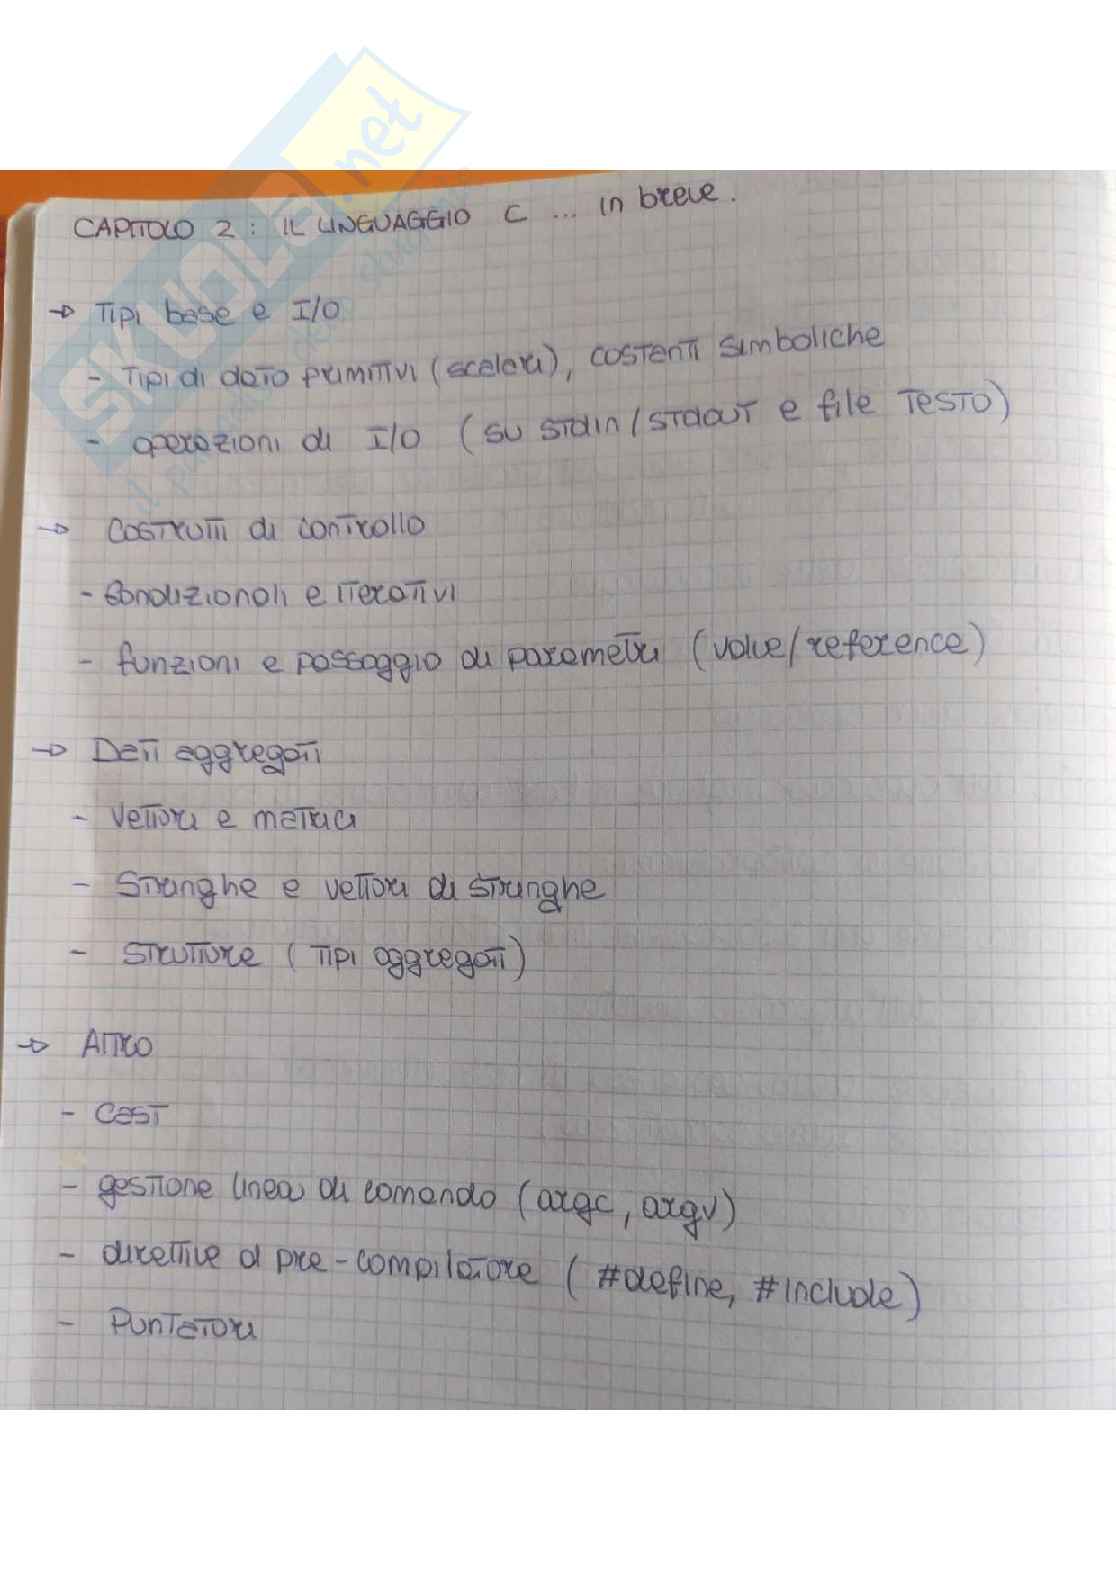 SKUOLA.net
CAPITOLO 2: IL LINGUAGGIO C ... in breve.
→ Tipi base e I/O
- Tipi di dato primitivi (scalari), costanti simboliche
- operazioni di I/O (su stdin/stdout e file testo)
→ Costrutti di controllo
- condizionali e iterativi
- funzioni e passaggio di parametri (value/reference)
→ Dati aggregati
- Vettori e matrici
- Stringhe e vettori di stringhe
- Strutture (tipi aggregati)
→ Altro
- Cast
- gestione linea di comando (argc, argv)
- direttive al pre-compilatore (#define, #include)
- Puntatori